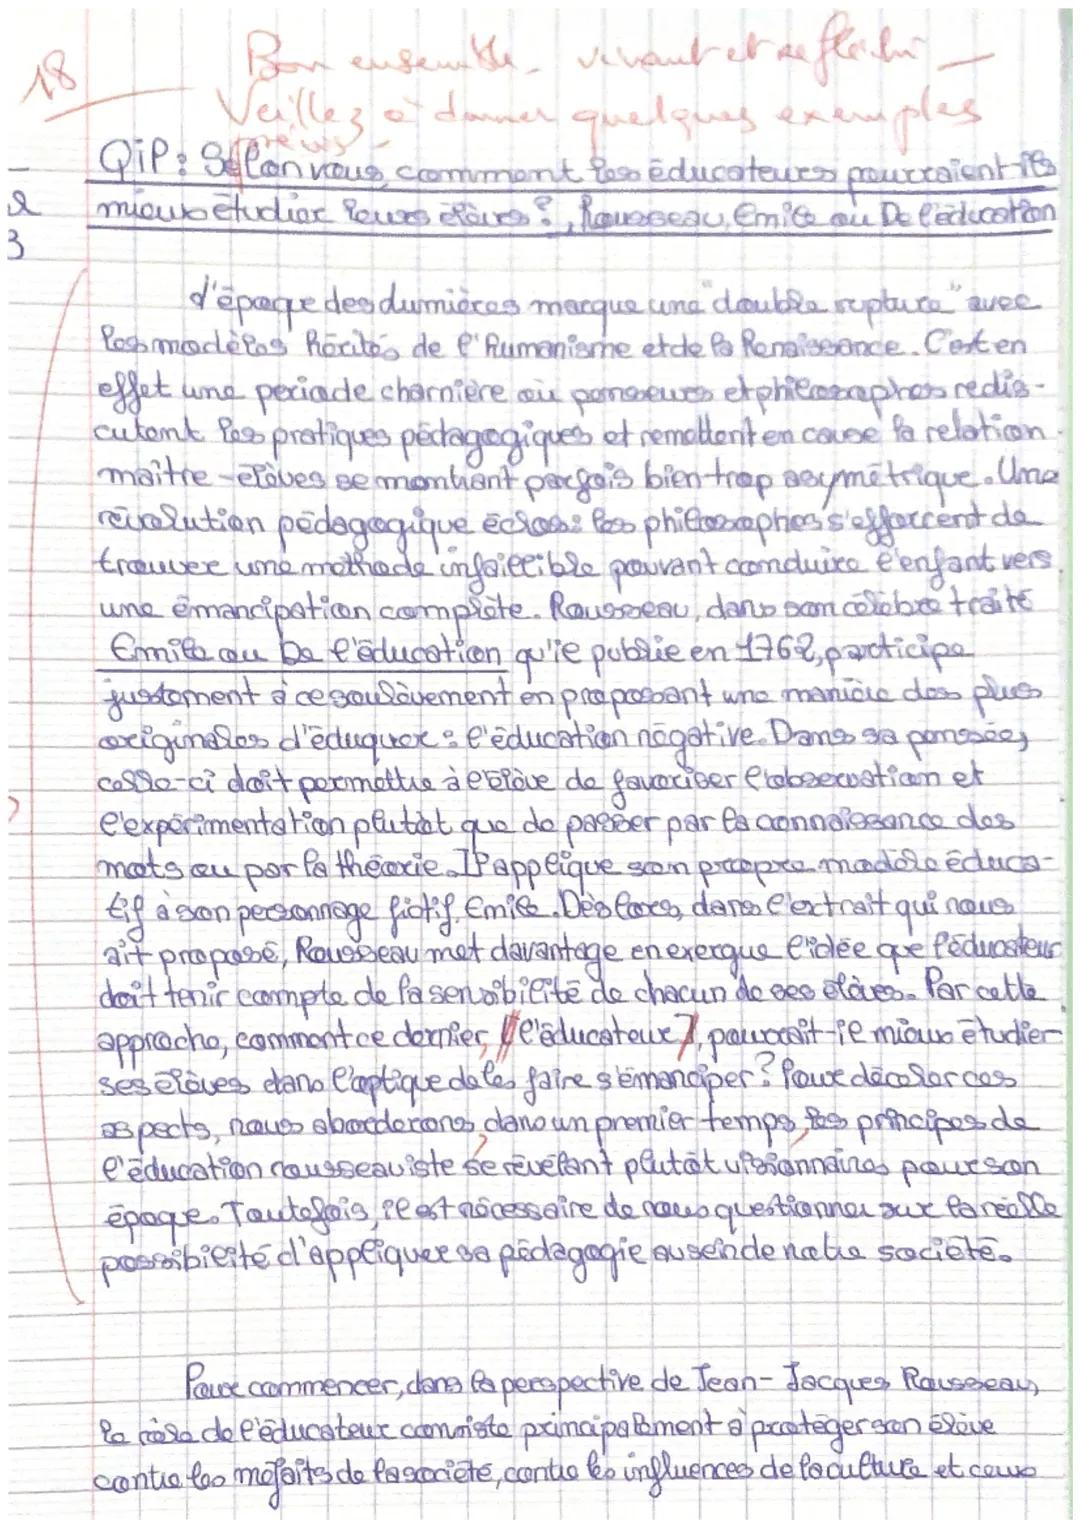 18
Bon ensemble - vivant et réfléchi -
Veillez à donner quelques exemples
précis -
QiP : Selon vous, comment les éducateurs pourraient-ils
mieux étudier leurs élèves ?, Rousseau, Emile ou De l'éducation
2
3
L'époque des Lumières marque une "double rupture" avec
les modèles hérités de l'Humanisme et de la Renaissance. C'est en
effet une période charnière où penseurs et philosophes redis-
cutent les pratiques pédagogiques et remettent en cause la relation
maître-élèves se montrant parfois bien trop asymétrique. Une
révolution pédagogique éclos : les philosophes s'efforcent de
trouver une méthode infaillible pouvant conduire l'enfant vers
une émancipation complète. Rousseau, dans son célèbre traité
Emile ou De l'éducation qu'il publie en 1762, participe
justement à ce soulèvement en proposant une manière des plus
originales d'éduquer : l'éducation négative. Dans sa pensée,
celle-ci doit permettre à l'élève de favoriser l'observation et
l'expérimentation plutôt que de passer par la connaissance des
mots ou par la théorie. Il applique son propre modèle éduca-
tif à son personnage fictif, Emile. Dès lors, dans l'extrait qui nous
ait proposé, Rousseau met davantage en exergue l'idée que l'éducateur
doit tenir compte de la sensibilité de chacun de ses élèves. Par cette
approche, comment ce dernier, (l'éducateur), pourrait-il mieux étudier
ses élèves dans l'optique de les faire s'émanciper ? Pour déceler ces
aspects, nous aborderons, dans un premier temps, les principes de
l'éducation rousseauiste se révélant plutôt visionnaires pour son
époque. Toutefois, il est nécessaire de nous questionner sur la réelle
possibilité d'appliquer sa pédagogie au sein de notre société.
Pour commencer, dans la perspective de Jean-Jacques Rousseau,
le rôle de l'éducateur consiste principalement à protéger son élève
contre les méfaits de la société, contre les influences de la culture et ceux